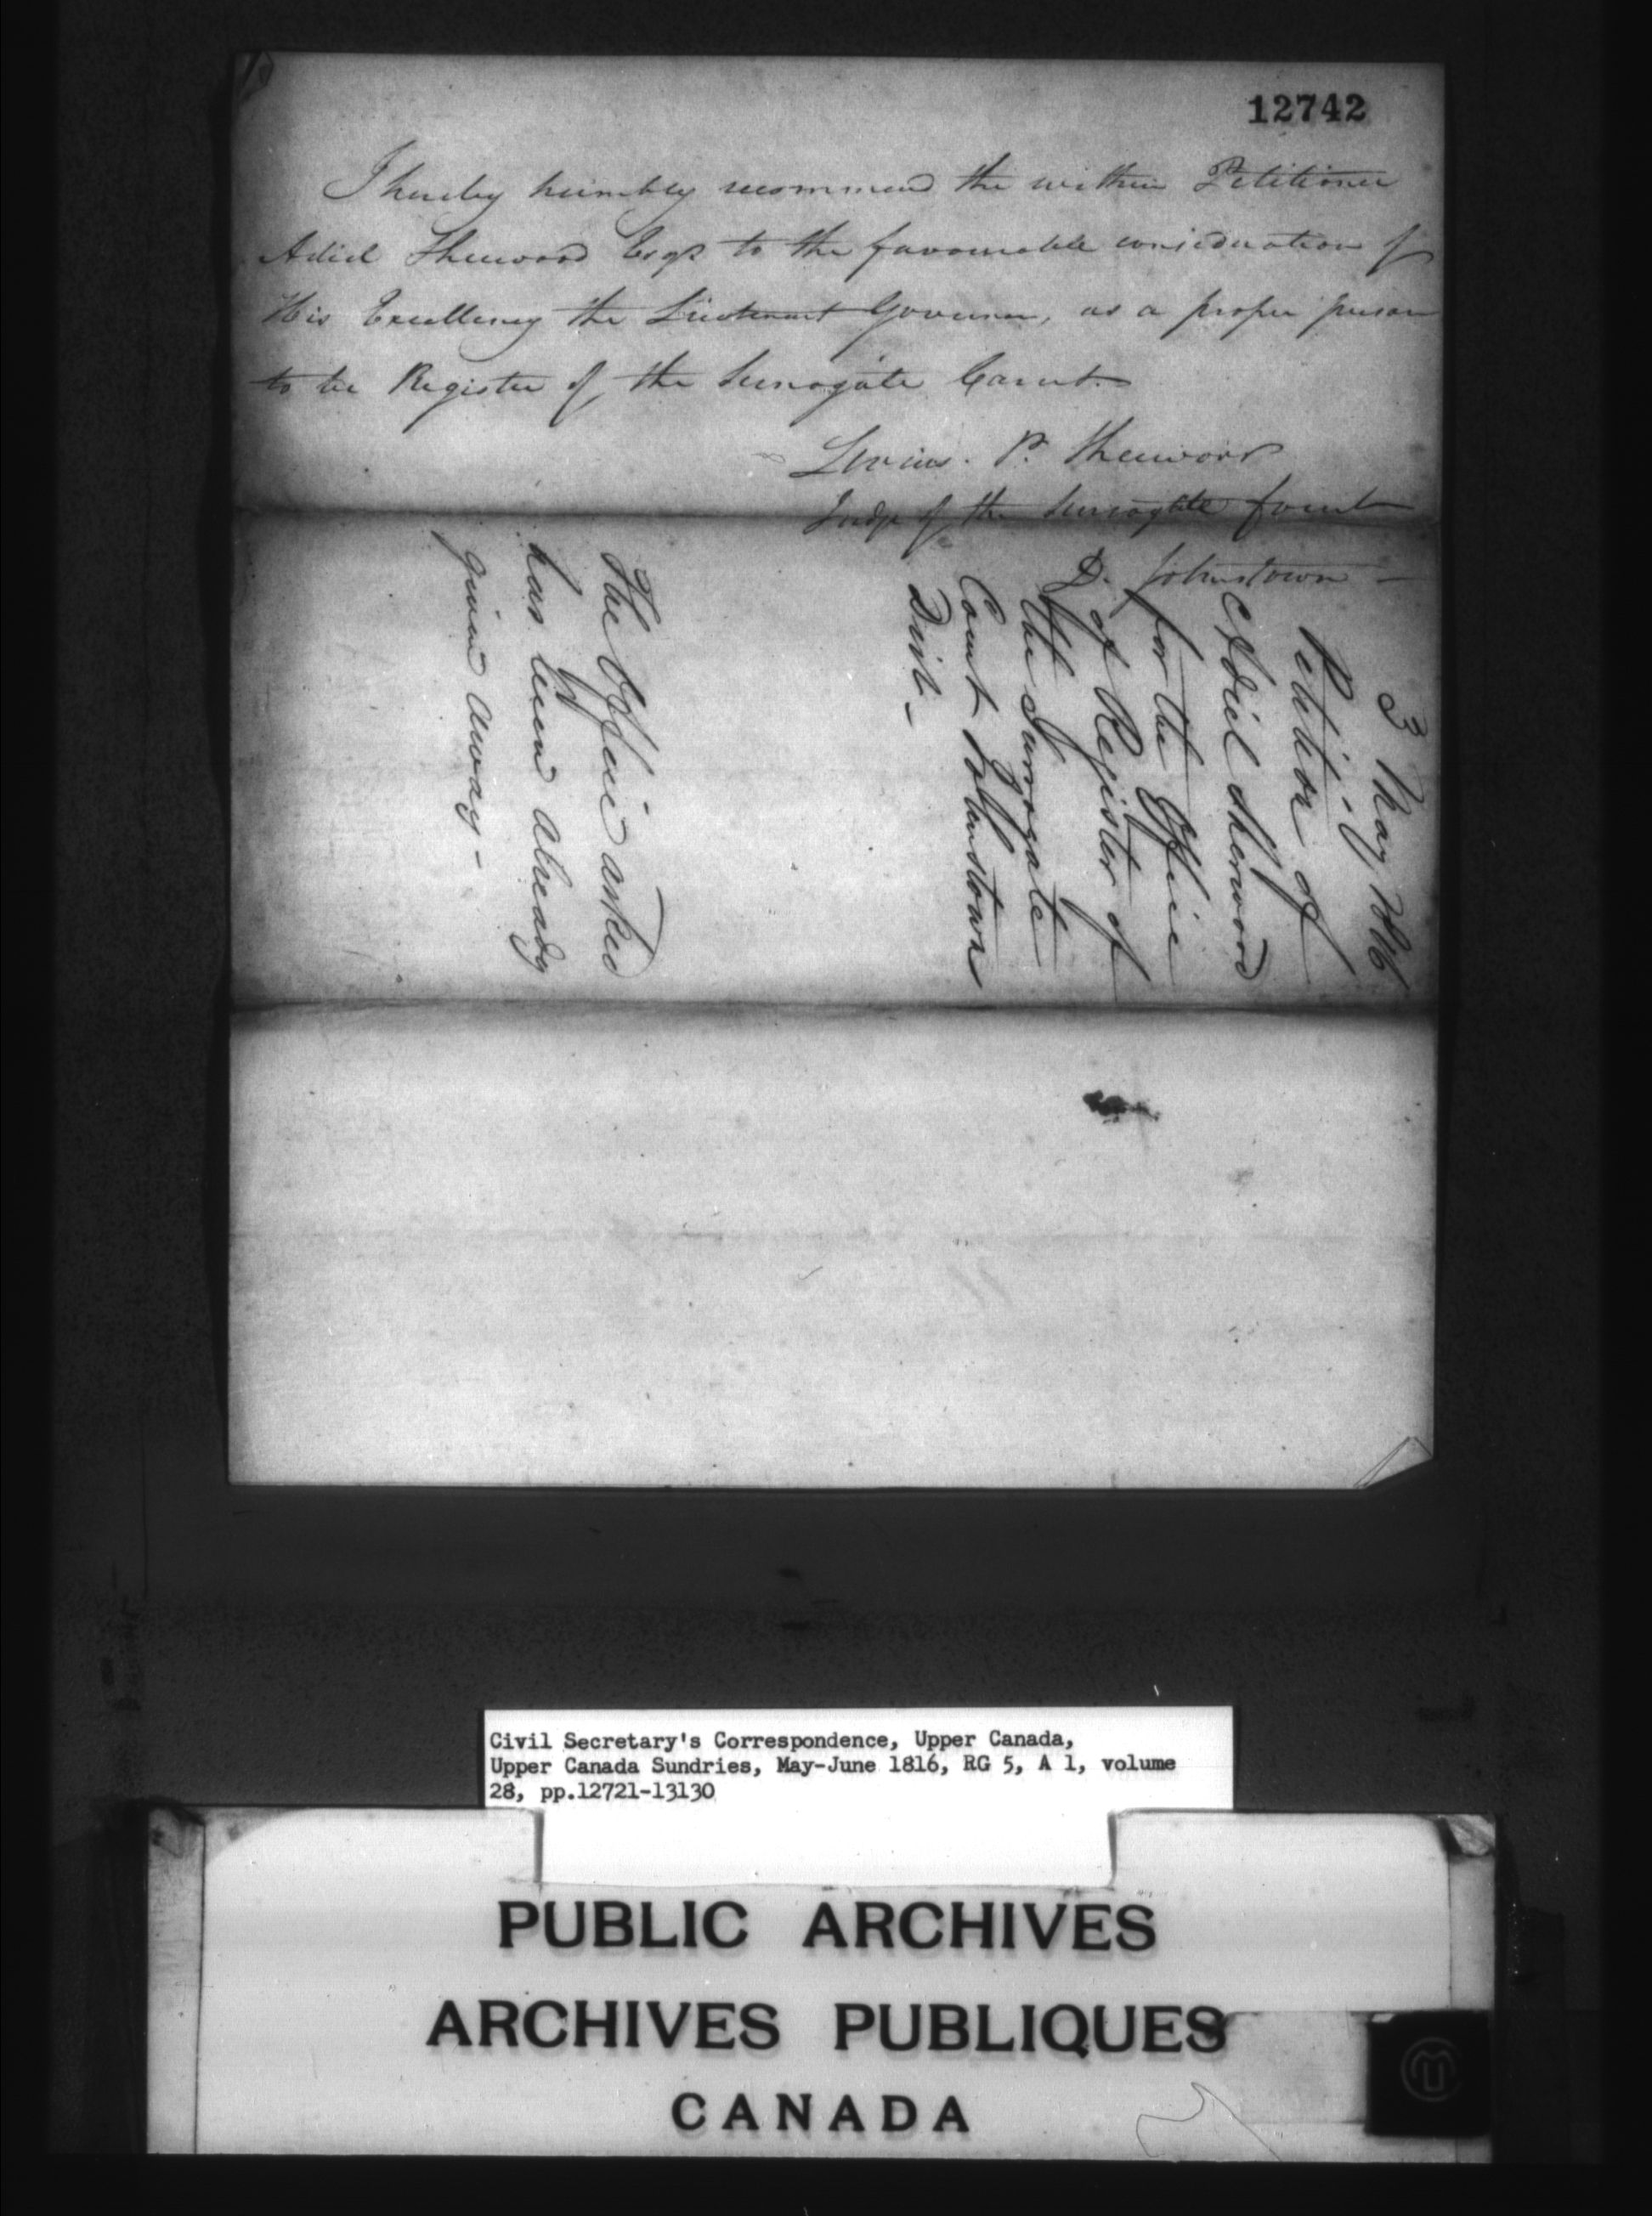 12742
I hereby humbly recommend the within Petitioner
Adiel Sherwood Esqr to the favourable consideration of
His Excellency the Lieutenant Governor, as a proper person
to be Register of the Surrogate Court.
Levius. P. Sherwood
Judge of the Surrogate Court
D. Johnstown -
3 May 1816
Petition of
Adiel Sherwood
for the Office
of Register of
the Surrogate
Court Johnstown
Dist -
The Office asked
has been already
given away -
Civil Secretary's Correspondence, Upper Canada,
Upper Canada Sundries, May-June 1816, RG 5, A 1, volume
28, pp.12721-13130
PUBLIC ARCHIVES
ARCHIVES PUBLIQUES
CANADA